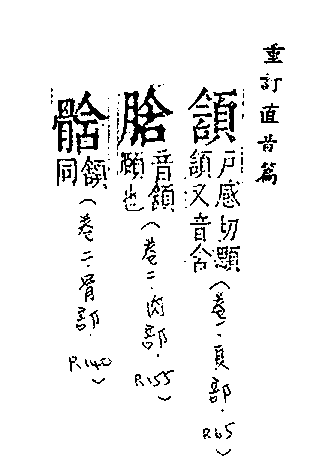 重訂直音篇
頷 戶感切顋頷又音含(卷一.頁部.P.65)
䏩 音頷顄也(卷二.肉部.P.155)
䯚 頷同(卷二.骨部.P.140)